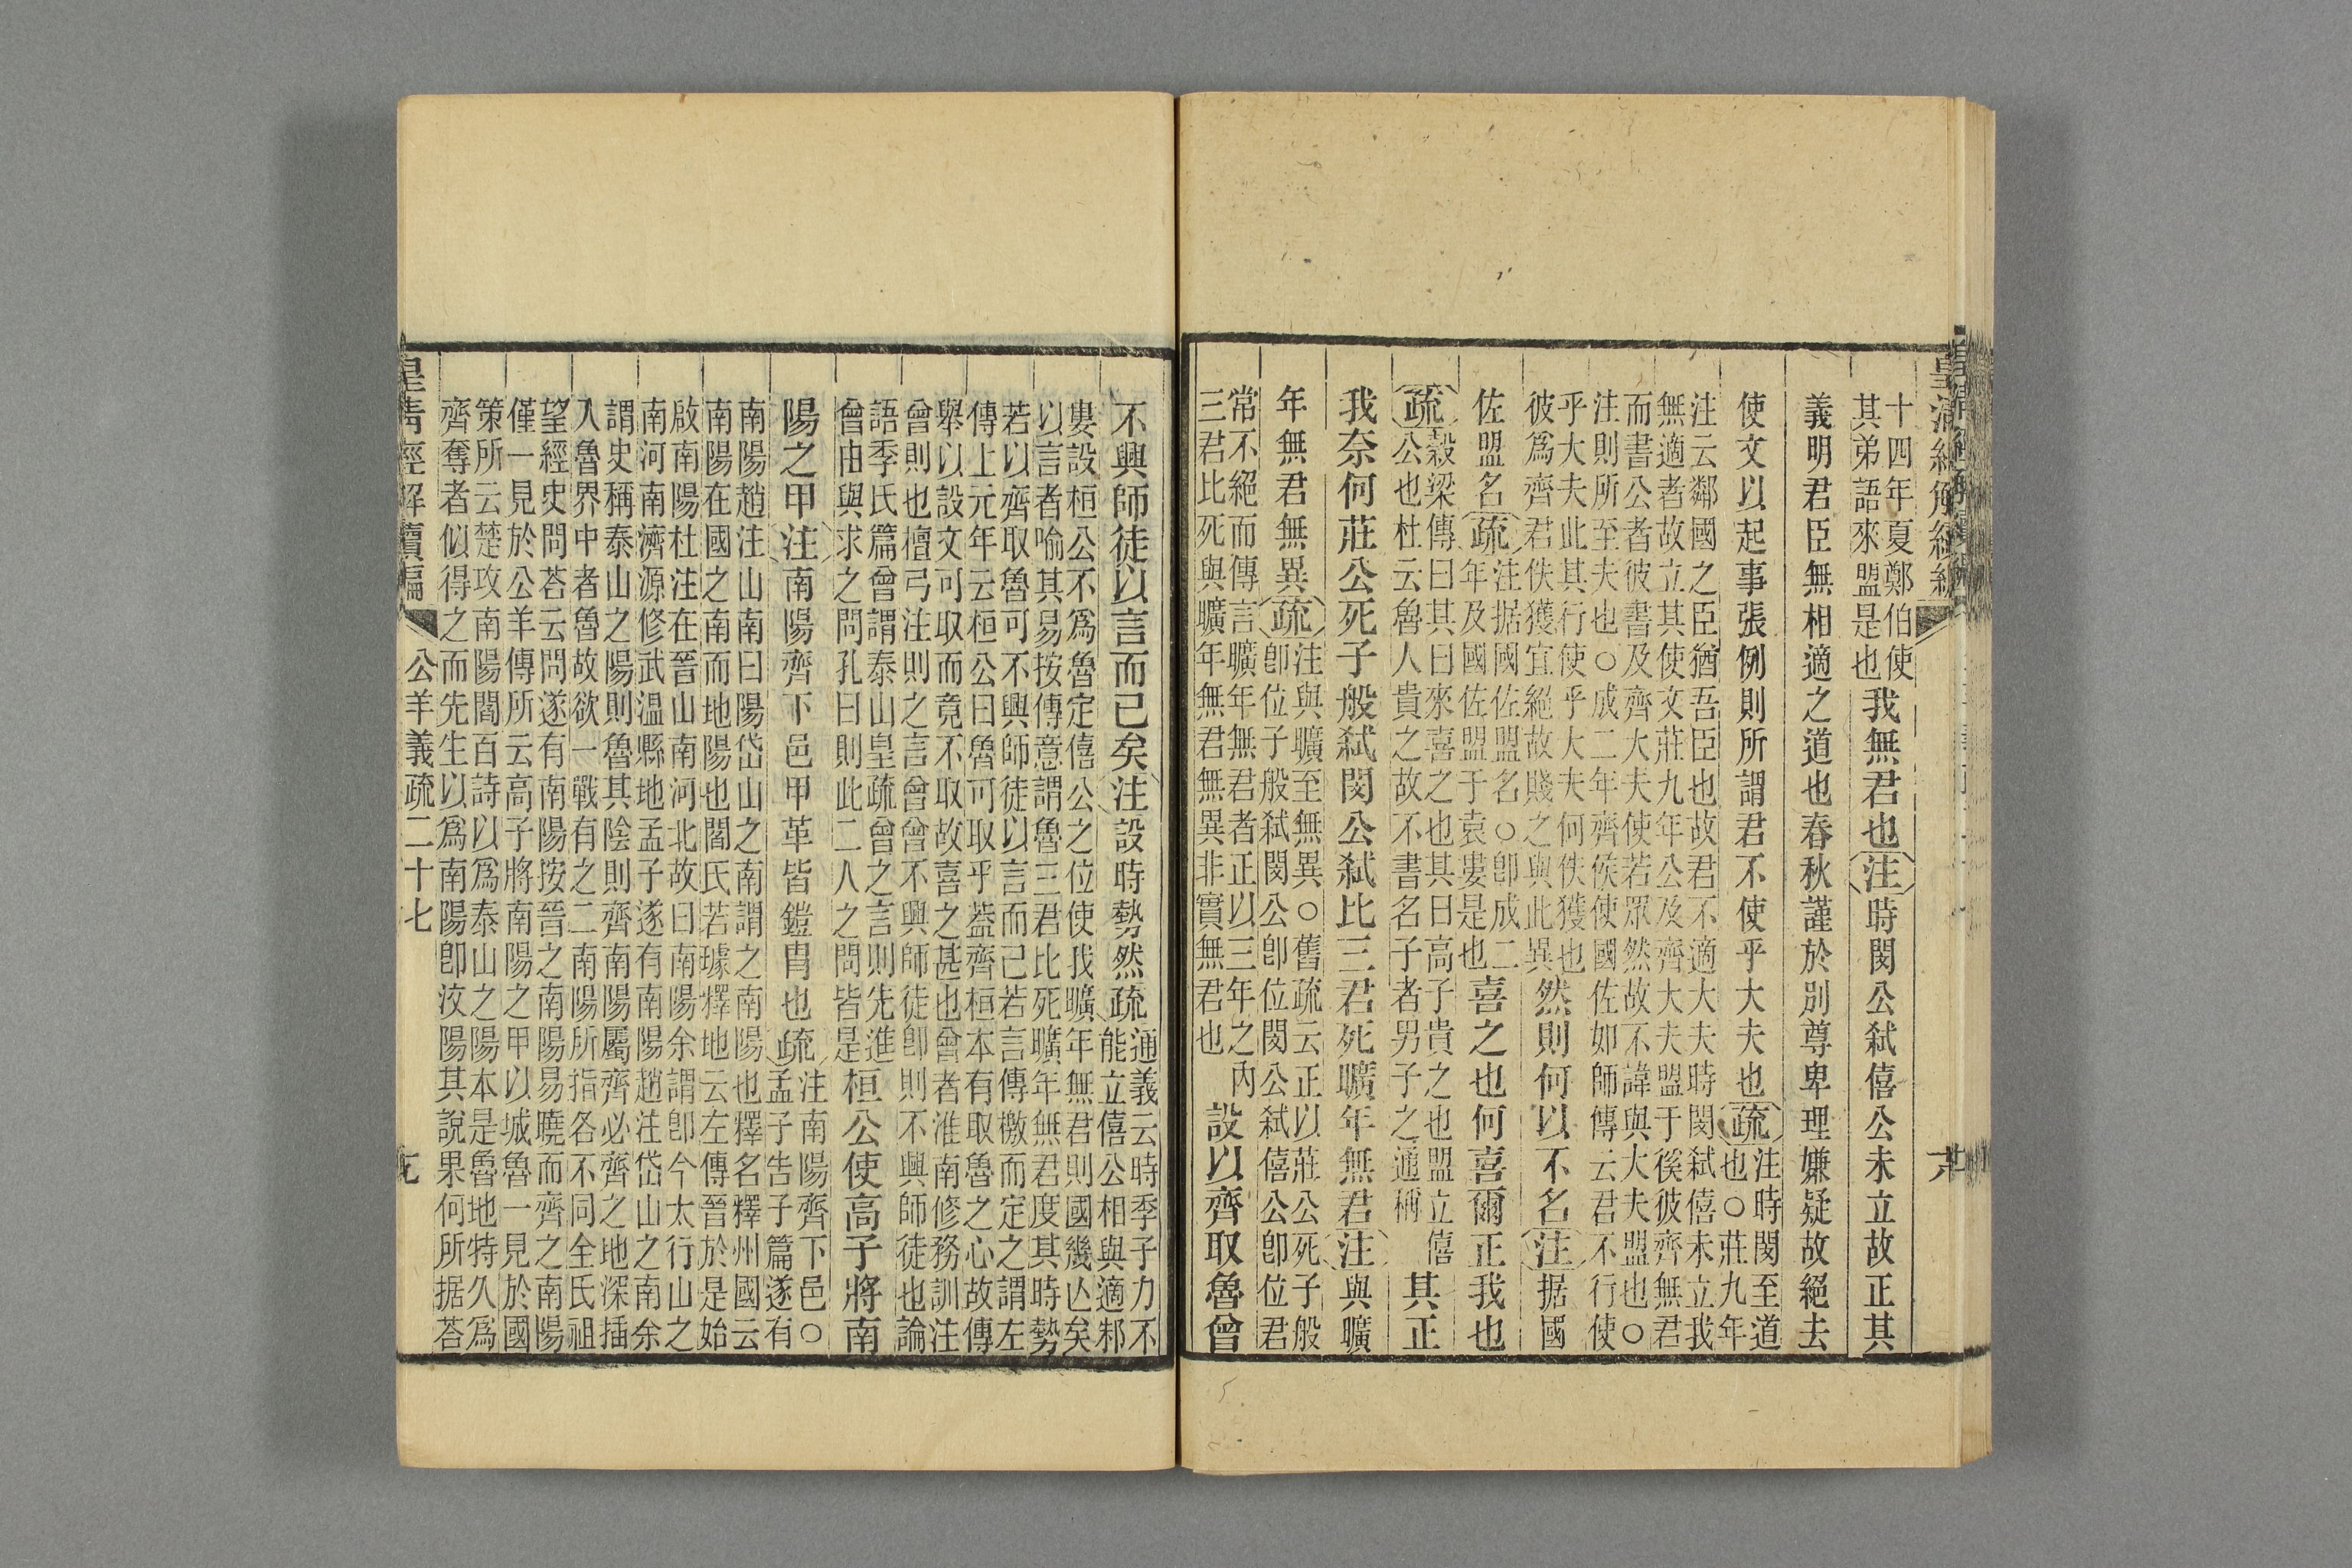 十四年夏鄭伯使其弟語來盟是也我無君也注時閔公弑僖公未立故正其
義明君臣無相適之道也春秋謹於別尊卑理嫌疑故絕去
使文以起事張例則所謂君不使乎大夫也疏注時閔至道也○莊九年
注云鄰國之臣猶吾臣也故君不適大夫時閔弑僖未立我
無適者故立其使文莊九年公及齊大夫盟于徯彼齊無君
而書公者彼書及齊大夫使若眾然故不諱與大夫盟也○
注則所至夫也○成二年齊侯使國佐如師傳云君不行使
乎大夫此其行使乎大夫何佚獲也彼爲齊君佚獲宜絕故賤之與此異然則何以不名注据國
佐盟名疏注据國佐盟名○卽成二年及國佐盟于袁婁是也喜之也何喜爾正我也
疏穀梁傳曰其曰來喜之也其曰高子貴之也盟立僖公也杜云魯人貴之故不書名子者男子之通稱其正
我奈何莊公死子般弑閔公弑比三君死曠年無君注與曠
年無君無異疏注與曠至無異○舊疏云正以莊公死子般卽位子般弑閔公卽位閔公弑僖公卽位君
常不絕而傳言曠年無君者正以三年之內三君比死與曠年無君無異非實無君也設以齊取魯曾
不興師徒以言而已矣注設時勢然疏通義云時季子力不能立僖公相與適邾
婁設桓公不爲魯定僖公之位使我曠年無君則國幾亾矣
以言者喻其易按傳意謂魯三君比死曠年無君度其時勢
若以齊取魯可不興師徒以言而已若言傳檄而定之謂左
傳上元年云桓公曰魯可取乎蓋齊桓本有取魯之心故傳
舉以設文可取而竟不取故喜之甚也曾者淮南修務訓注
曾則也檀弓注則之言曾曾不興師徒卽則不興師徒也論
語季氏篇曾謂泰山皇疏曾之言則先進曾由與求之問孔曰則此二人之問皆是桓公使高子將南
陽之甲注南陽齊下邑甲革皆鎧胄也疏注南陽齊下邑○孟子告子篇遂有
南陽趙注山南曰陽岱山之南謂之南陽也釋名釋州國云
南陽在國之南而地陽也閻氏若璩釋地云左傳晉於是始
啟南陽杜注在晉山南河北故曰南陽余謂卽今太行山之
南河南濟源修武温縣地孟子遂有南陽趙注岱山之南余
謂史稱泰山之陽則魯其陰則齊南陽屬齊必齊之地深插
入魯界中者魯故欲一戰有之二南陽所指各不同全氏祖
望經史問荅云問遂有南陽按晉之南陽易曉而齊之南陽
僅一見於公羊傳所云高子將南陽之甲以城魯一見於國
策所云楚攻南陽閻百詩以爲泰山之陽本是魯地特久爲
齊奪者似得之而先生以爲南陽卽汶陽其說果何所据荅
皇清經解續編 公羊義疏二十七